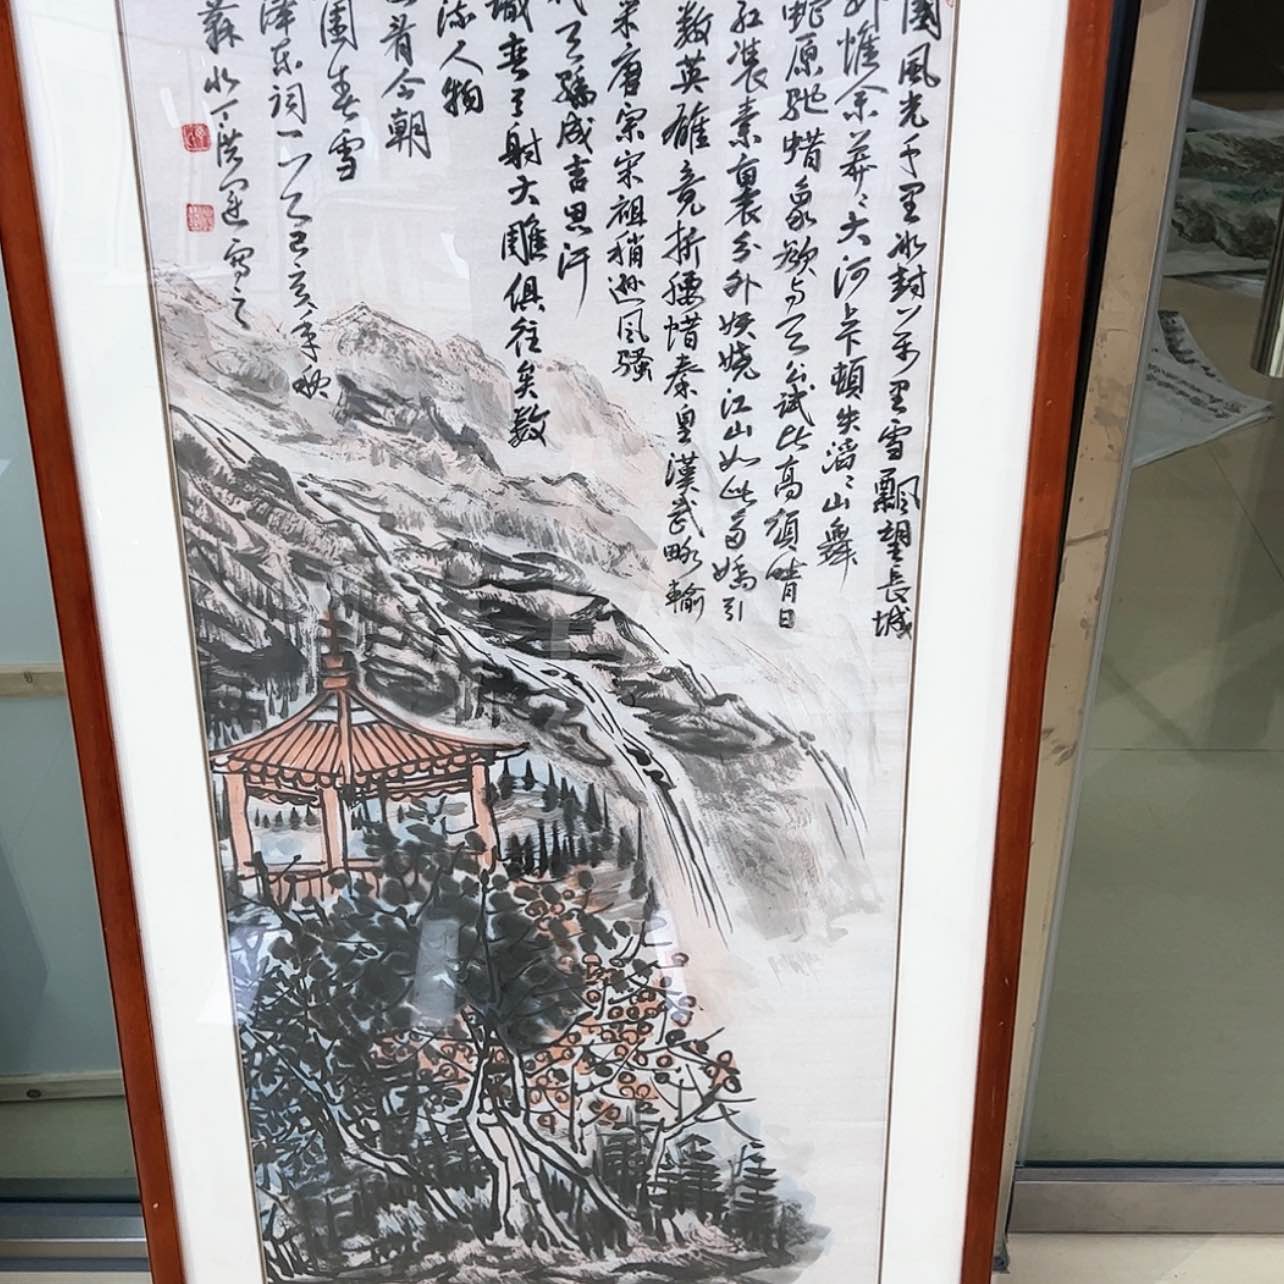 國風光千里冰封万里雪飄望長城
外惟余莽々大河上下頓失滔々山舞
蛇原馳蜡象欲与天公試比高須晴日
红装素裹分外妖娆江山如此多嬌引
数英雄竟折腰惜秦皇漢武略輸
采唐宗宋祖稍逊风骚
代天骄成吉思汗
識弯弓射大雕俱往矣数
流人物
看今朝
園春雪
泽东词一首己亥年秋
写之